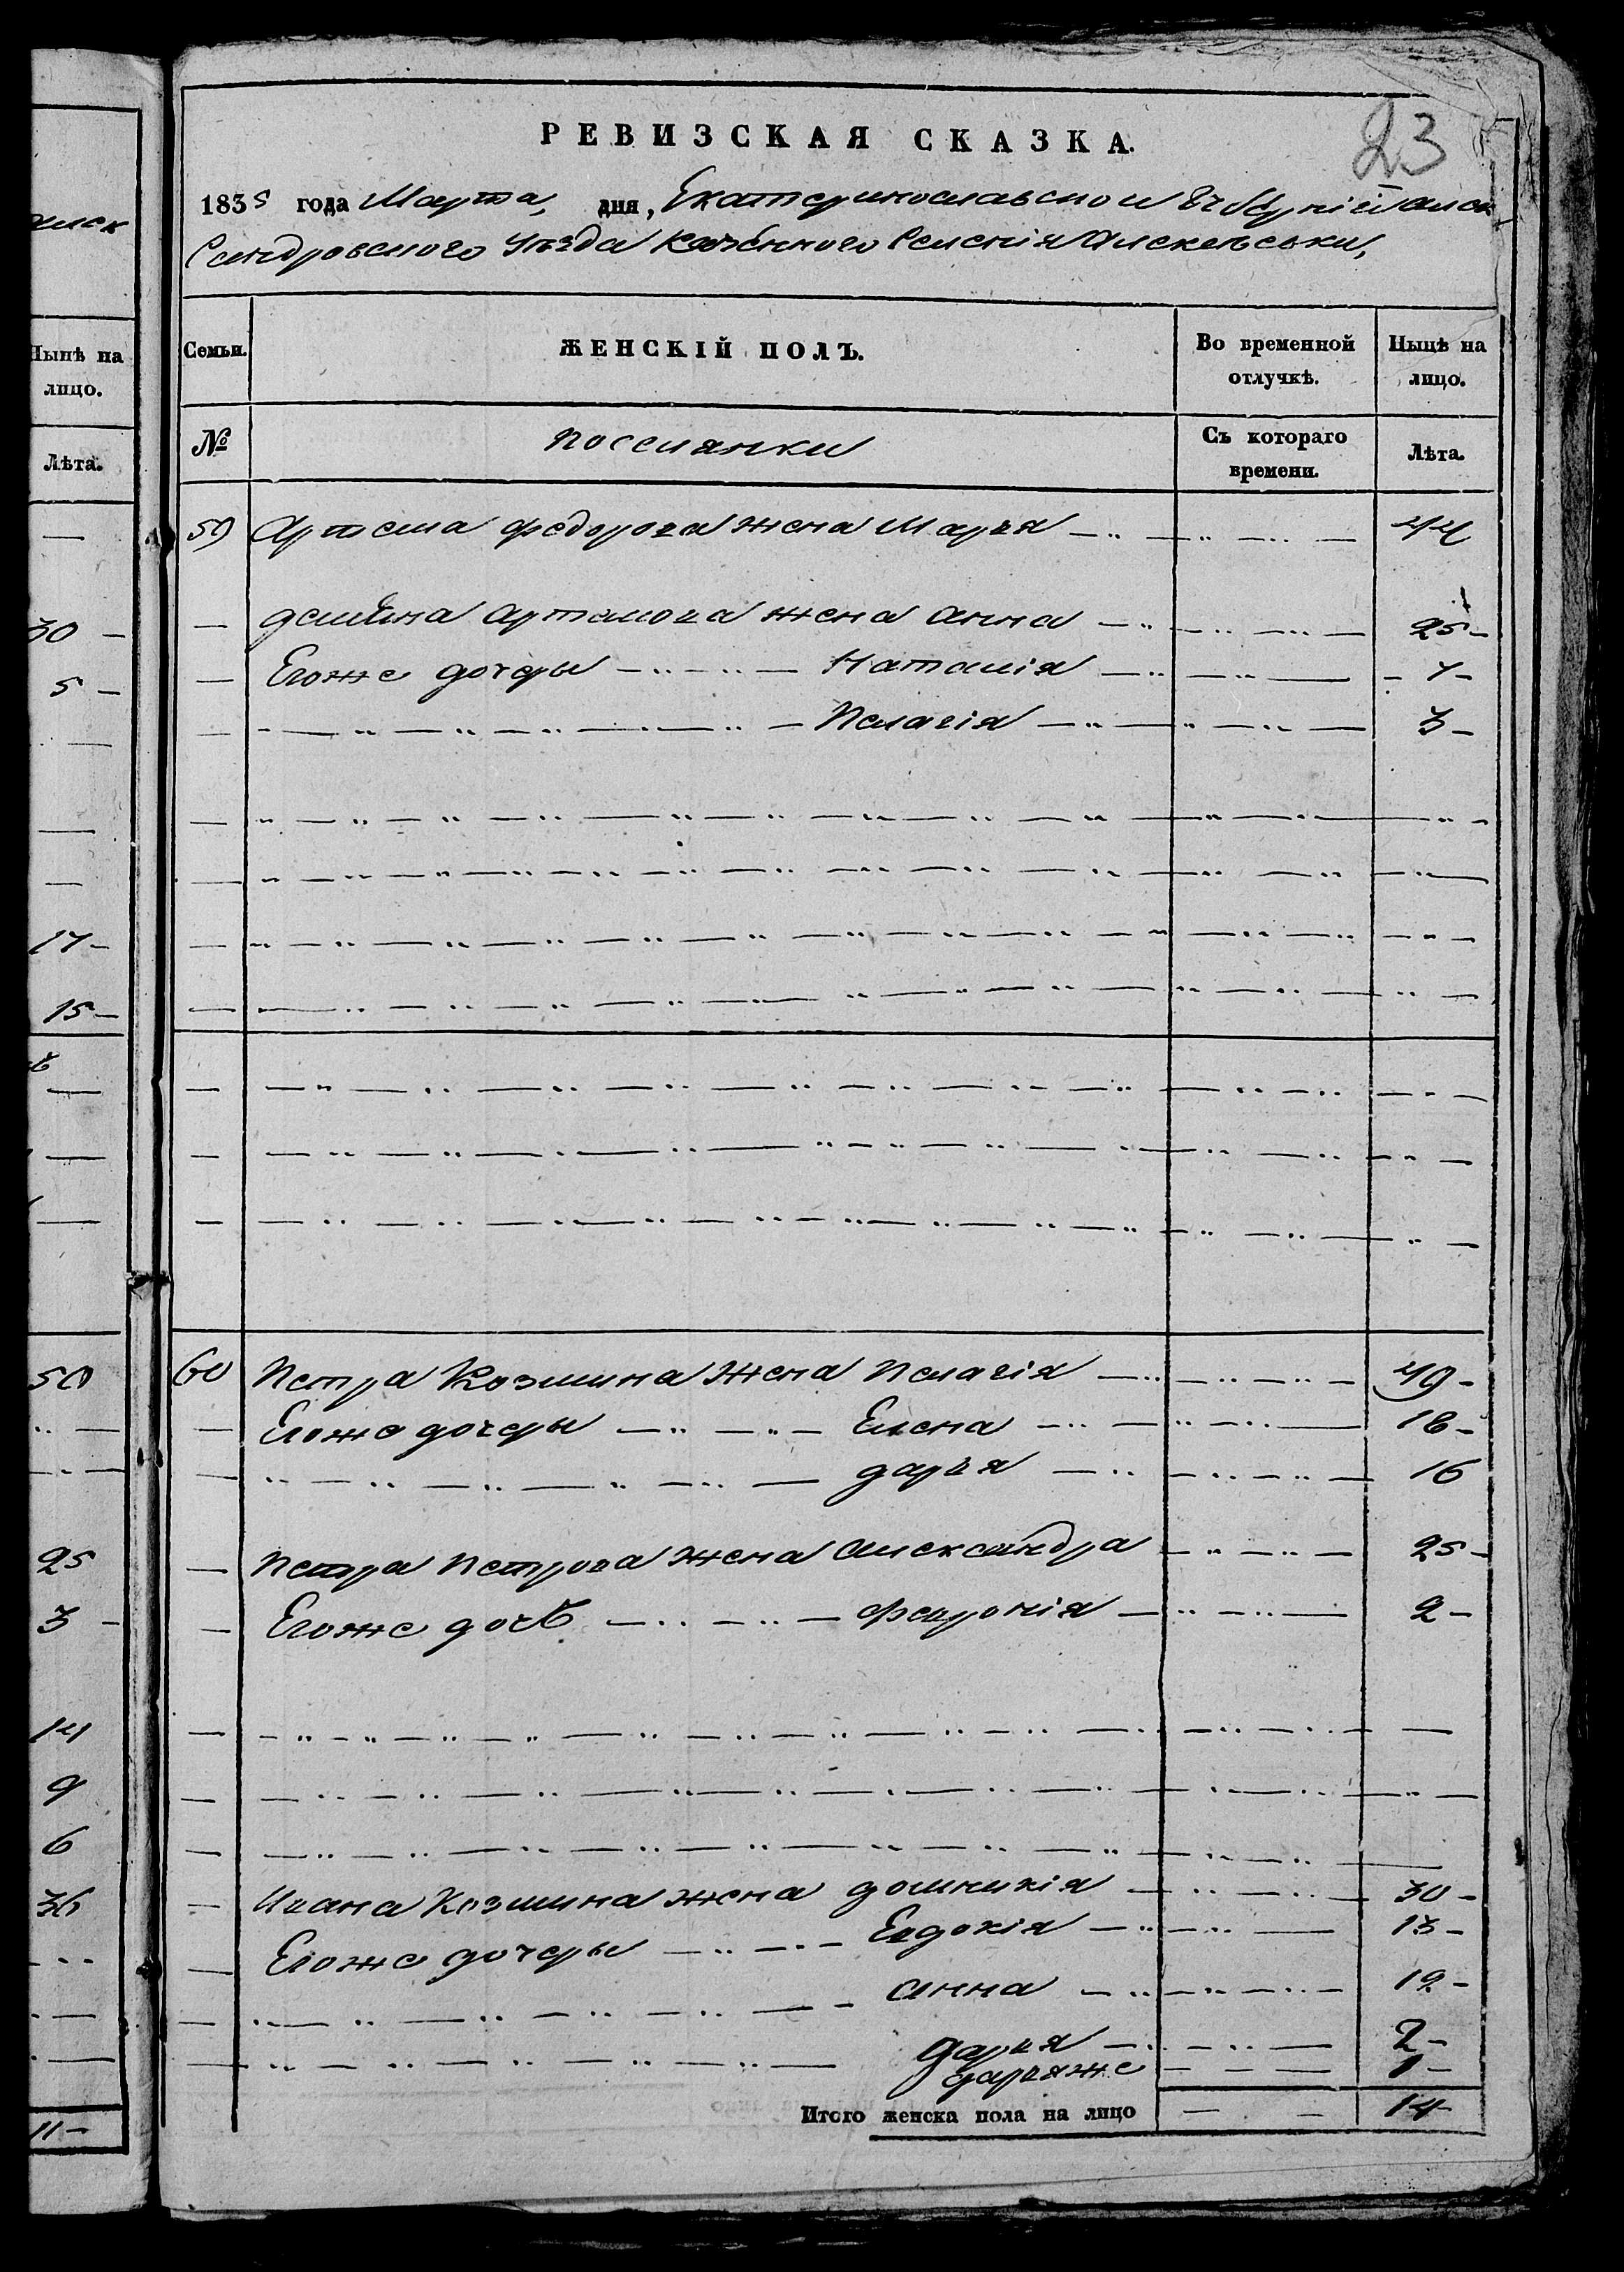 23
РЕВИЗСКАЯ СКАЗКА.
1835 года Марта, дня, Екатеринославской Губерніи алек
Сандровского Уѣзда Казенного Селенія
Семьи.
ЖЕНСКІЙ ПОЛЪ.
Во временной отлучкѣ.
Нынѣ на лицо.
№
поселянки
Съ котораго времени.
Лѣта.
59 Артема Федорова жена Марья 44
Демяна Артамова жена Анна 25
Егоже дочеры Наталія 7
Пелагія 3
60 Петра Козмина жена Пелагія 49
Егоже дочеры Елена 18
дарья 16
Петра Петрова жена Александра 25
Егоже дочь Февронія 2
Ивана Козмина жена домникія 30
Егоже дочеры Евдокія 13
анна 12
дарья 2
дарьяже 1
Итого женска пола на лицо 14
алек
Нынѣ на
лицо.
Лѣта.
30
5
17
15
50
25
3
14
9
6
36
11